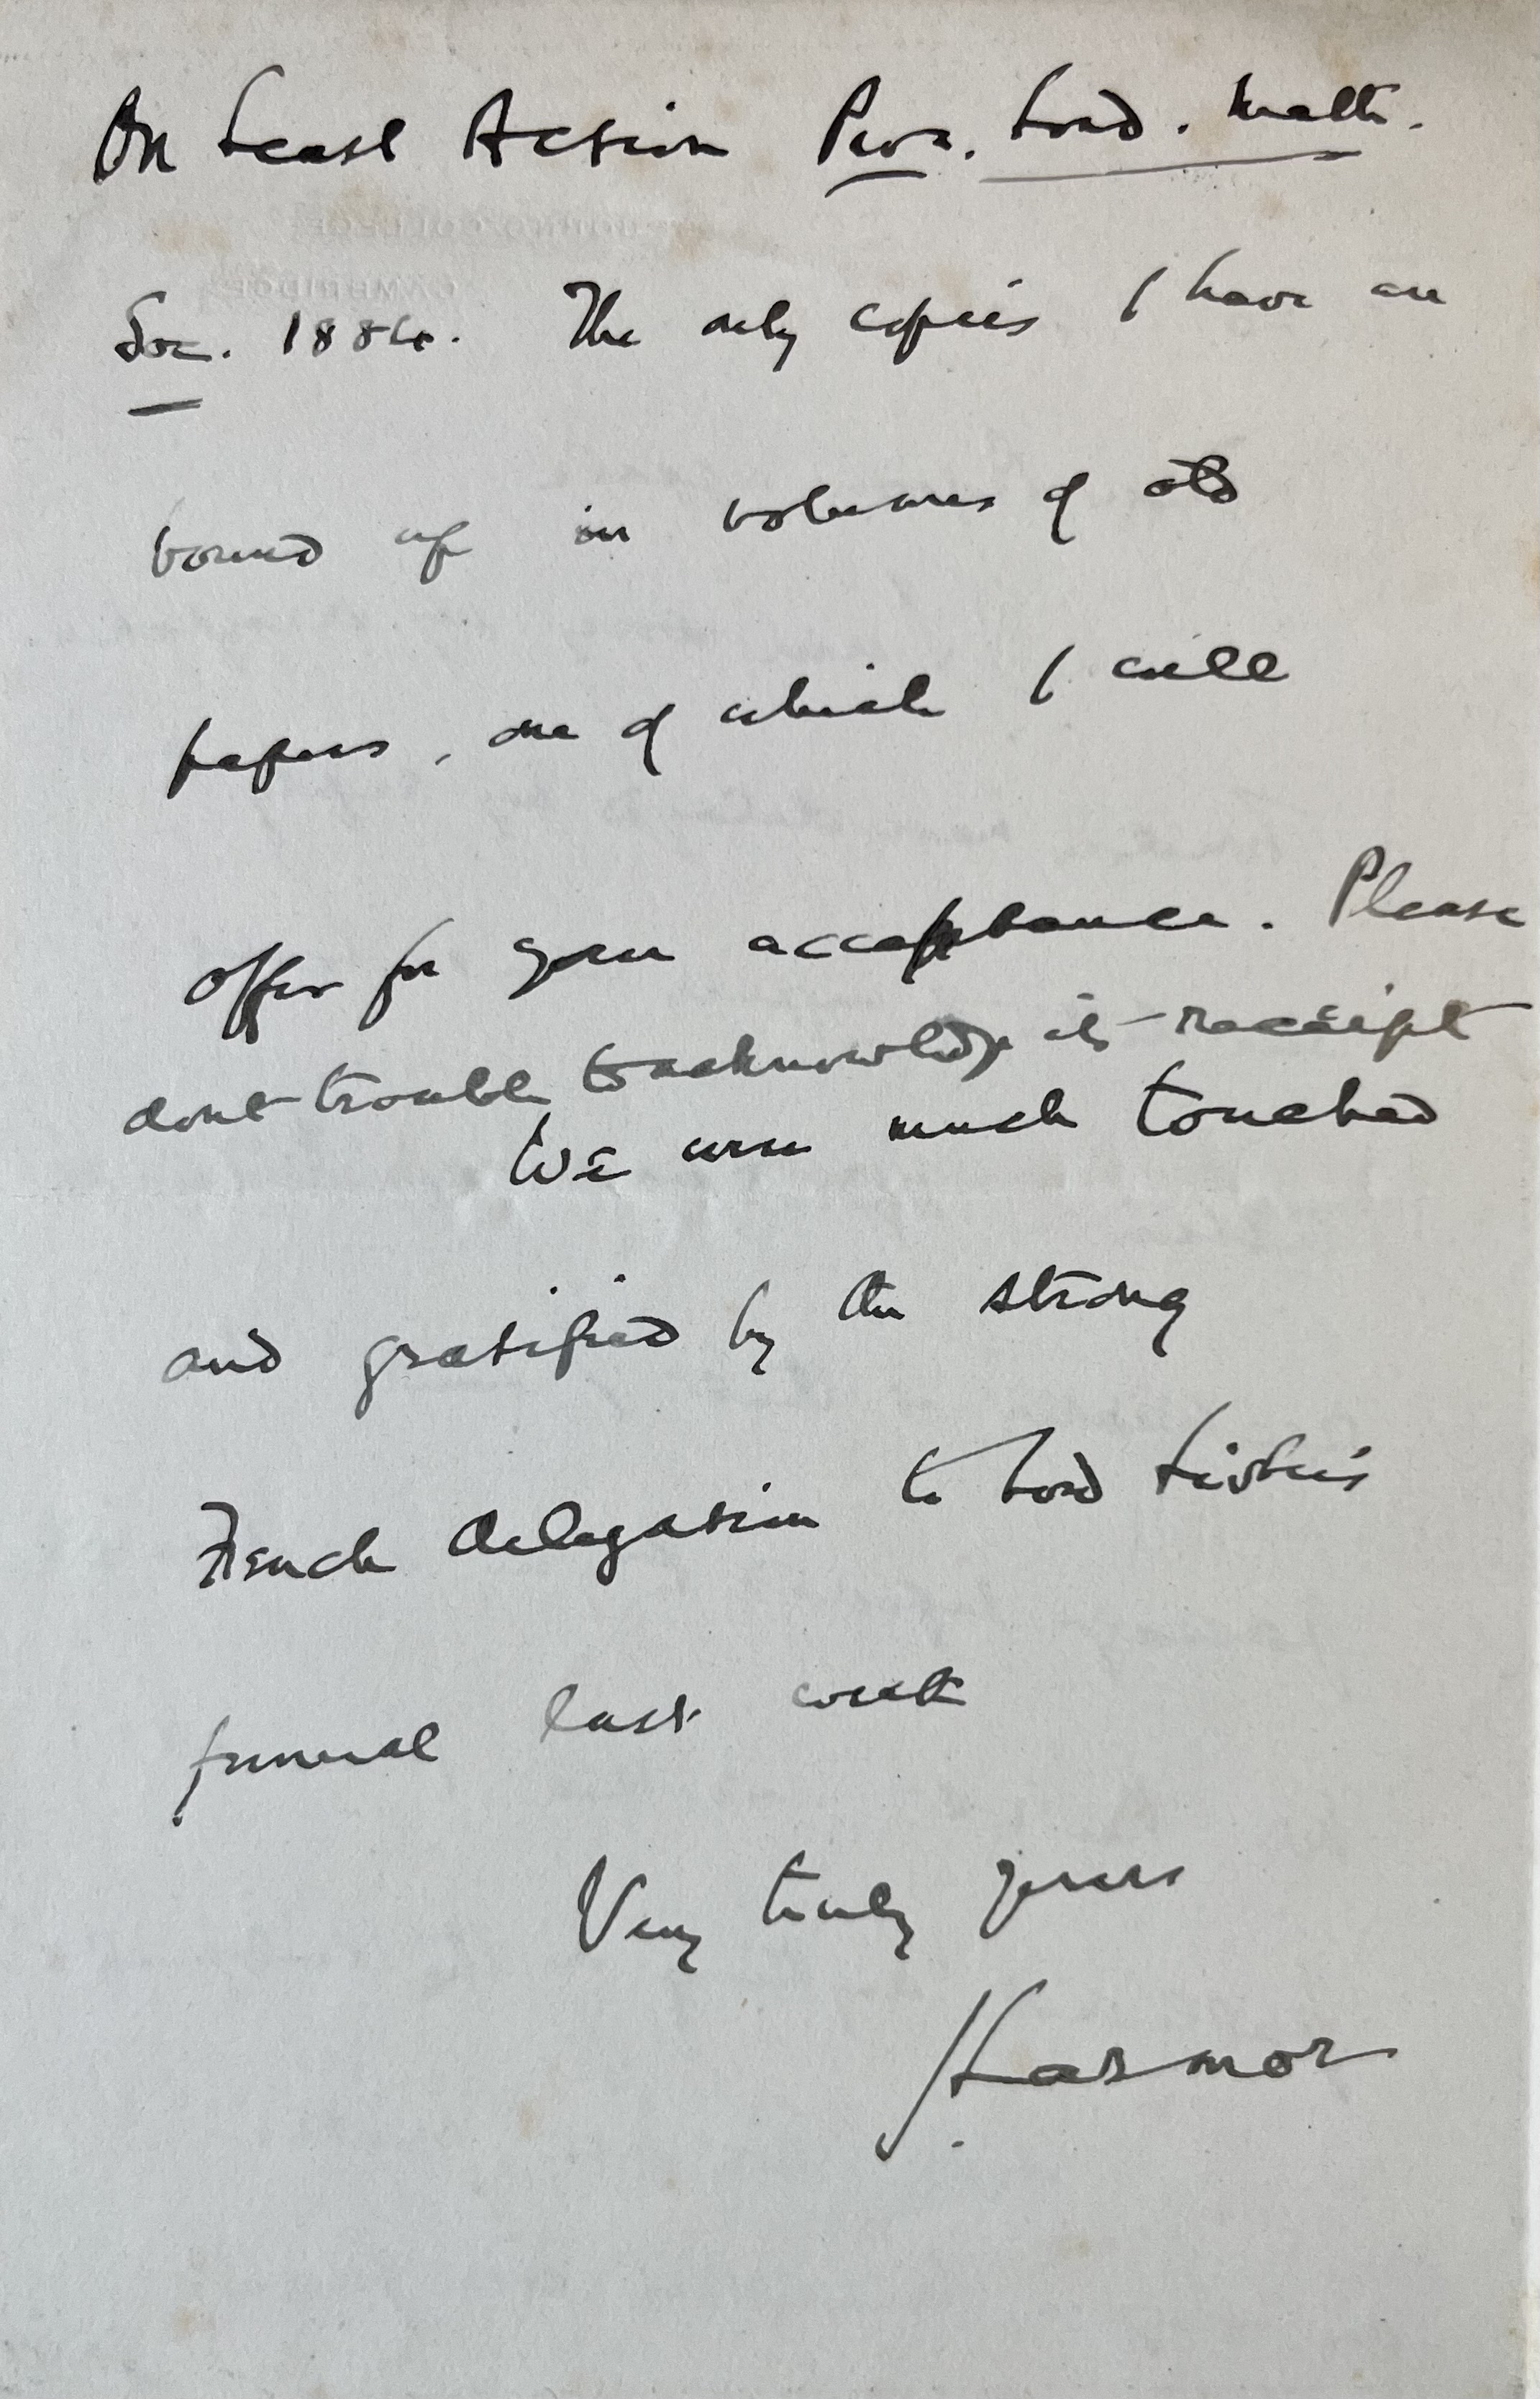 On Least Action Proc. Lond. Math.
Soc. 1884. The only copies I have are
bound up in volumes of old
papers, one of which I will
offer for your acceptance. Please
dont trouble to acknowledge its receipt
We were much touched
and gratified by the strong
French delegation to Lord Lister's
funeral last week
Very truly yours
J Larmor